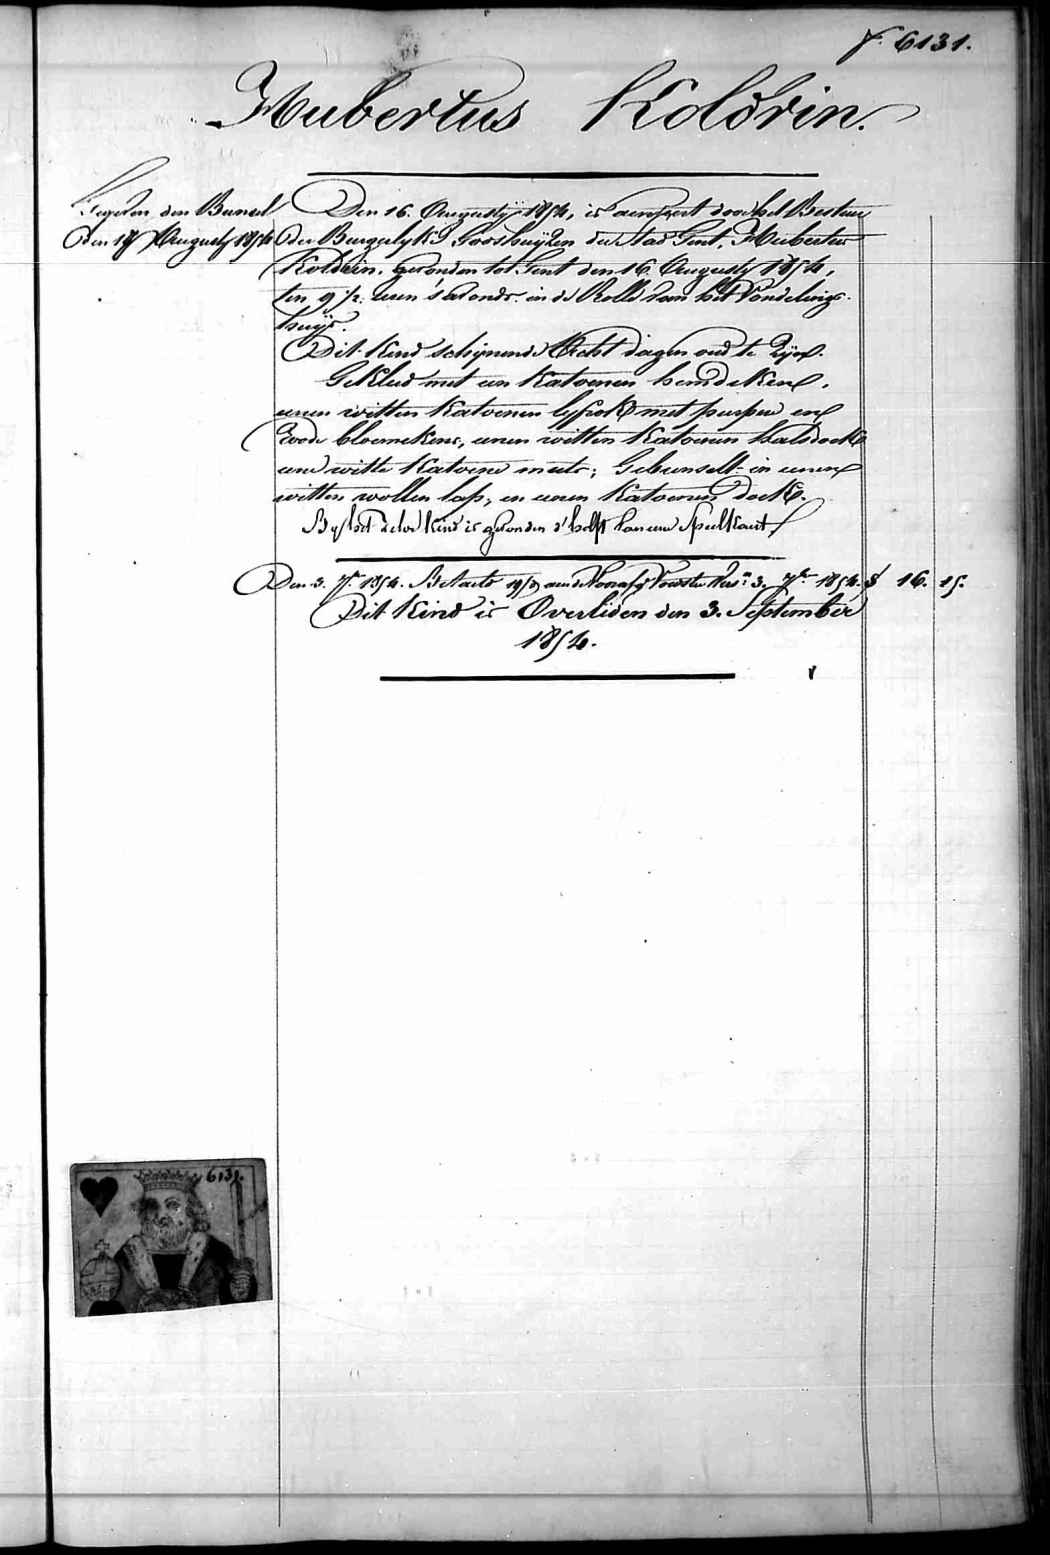 f. 6131.
Hubertus Koldrin.
Gegeven den Bunsel
den 18 Augusty 1854
Den 16. Augusty 1854, is aenveert door het Bestuur
der Burgelyke Godshuyzen der Stad Gent, Hubertus
Koldrin, gevonden tot Gent den 16. Augusty 1854,
ten 9 1/2 uren 's avonds in de Rolle van het Vondelings-
huys.
Dit Kind schynende Acht dagen oud te zyn.
Gekleed met een Katoenen hemdeken,
eenen witten Katoenen lyfrok met purper en
roode bloemekens, eenen witten Katoenen halsdoek
eene witte Katoene muts; Gebunselt in eenen
witten wollen lap, en eenen Katoenen doek.
By het zelve kind is gevonden d'helft van eene Speelkaart
Den 3. 7br 1854. Betaelt aen de Voedster 3. 7br 1854. f 16. 15.
Dit Kind is Overleden den 3. September
1854.
6131.